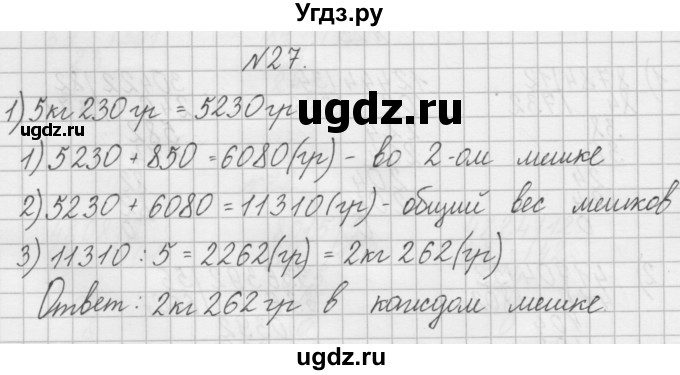 Угдз.ру
№27.
1) 5кг 230гр = 5230гр
ugdz.ru
ugdz.ru
ugdz.ru
1) 5230 + 850 = 6080(гр) - во 2-ом мешке
2) 5230 + 6080 = 11310(гр) - общий вес мешков
3) 11310 : 5 = 2262(гр) = 2кг 262(гр)
Ответ: 2кг 262гр в каждом мешке.
ugdz.ru
ugdz.ru